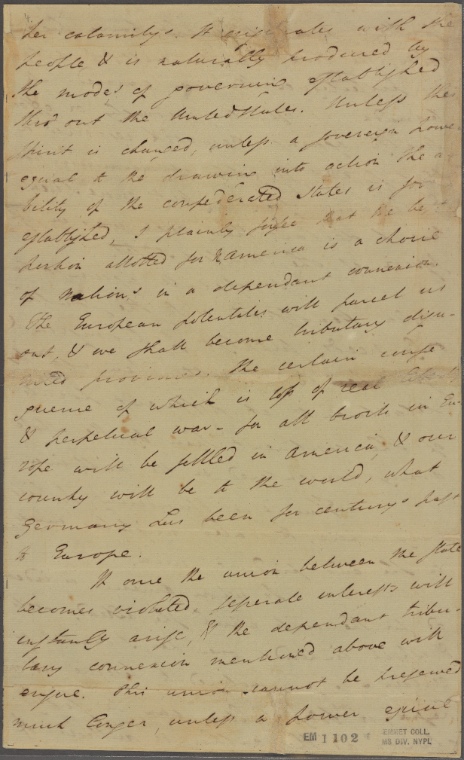 her calamitys. It originates with the
people & is naturally produced by
the modes of governmt established
thro out the United States. Unless the
spirit is changed, unless a sovereign power
equal to the drawing into action the a-
bility of the confederated States is for
established, I plainly forsee that the
portion allotted for America is a choice
of nations in a dependant connexion.
The European potentates will parcel us
out, & we shall become tributary disu-
nited provinces. The certain conse
quence of which is loss of real
& perpetual war - for all broils in Eu
rope will be settled in America & our
country will be to the world, what
Germany has been for centurys past
to Europe.
If once the union between the State
becomes violated seperate interests will
instantly arise, & the dependant tribu-
tary connexion mentioned above will
ensue. This union cannot be preserved
much longer, unless a power equal
EM 1102
EMMET COLL.
MS DIV. NYPL